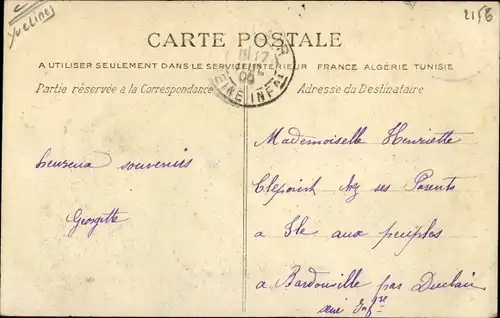 Yvelines
2158
CARTE POSTALE
A UTILISER SEULEMENT DANS LE SERVICE INTÉRIEUR FRANCE ALGÉRIE TUNISIE
Partie réservée à la Correspondance
Adresse du Destinataire
17
SEINE INF
heureux souvenirs
Georgette
Mademoiselle Henriette
chez ses Parents
a Ile aux peuples
a Bardouville par Duclair